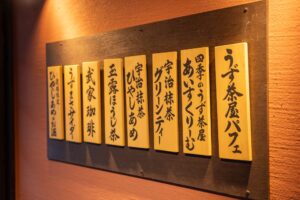 うず茶屋パフェ
四季のうず茶屋
あいすくりーむ
宇治抹茶
グリーンティー
宇治抹茶
ひやしあめ
玉露ほうじ茶
武家珈琲
うずまきサイダー
ひやしあめのお酒